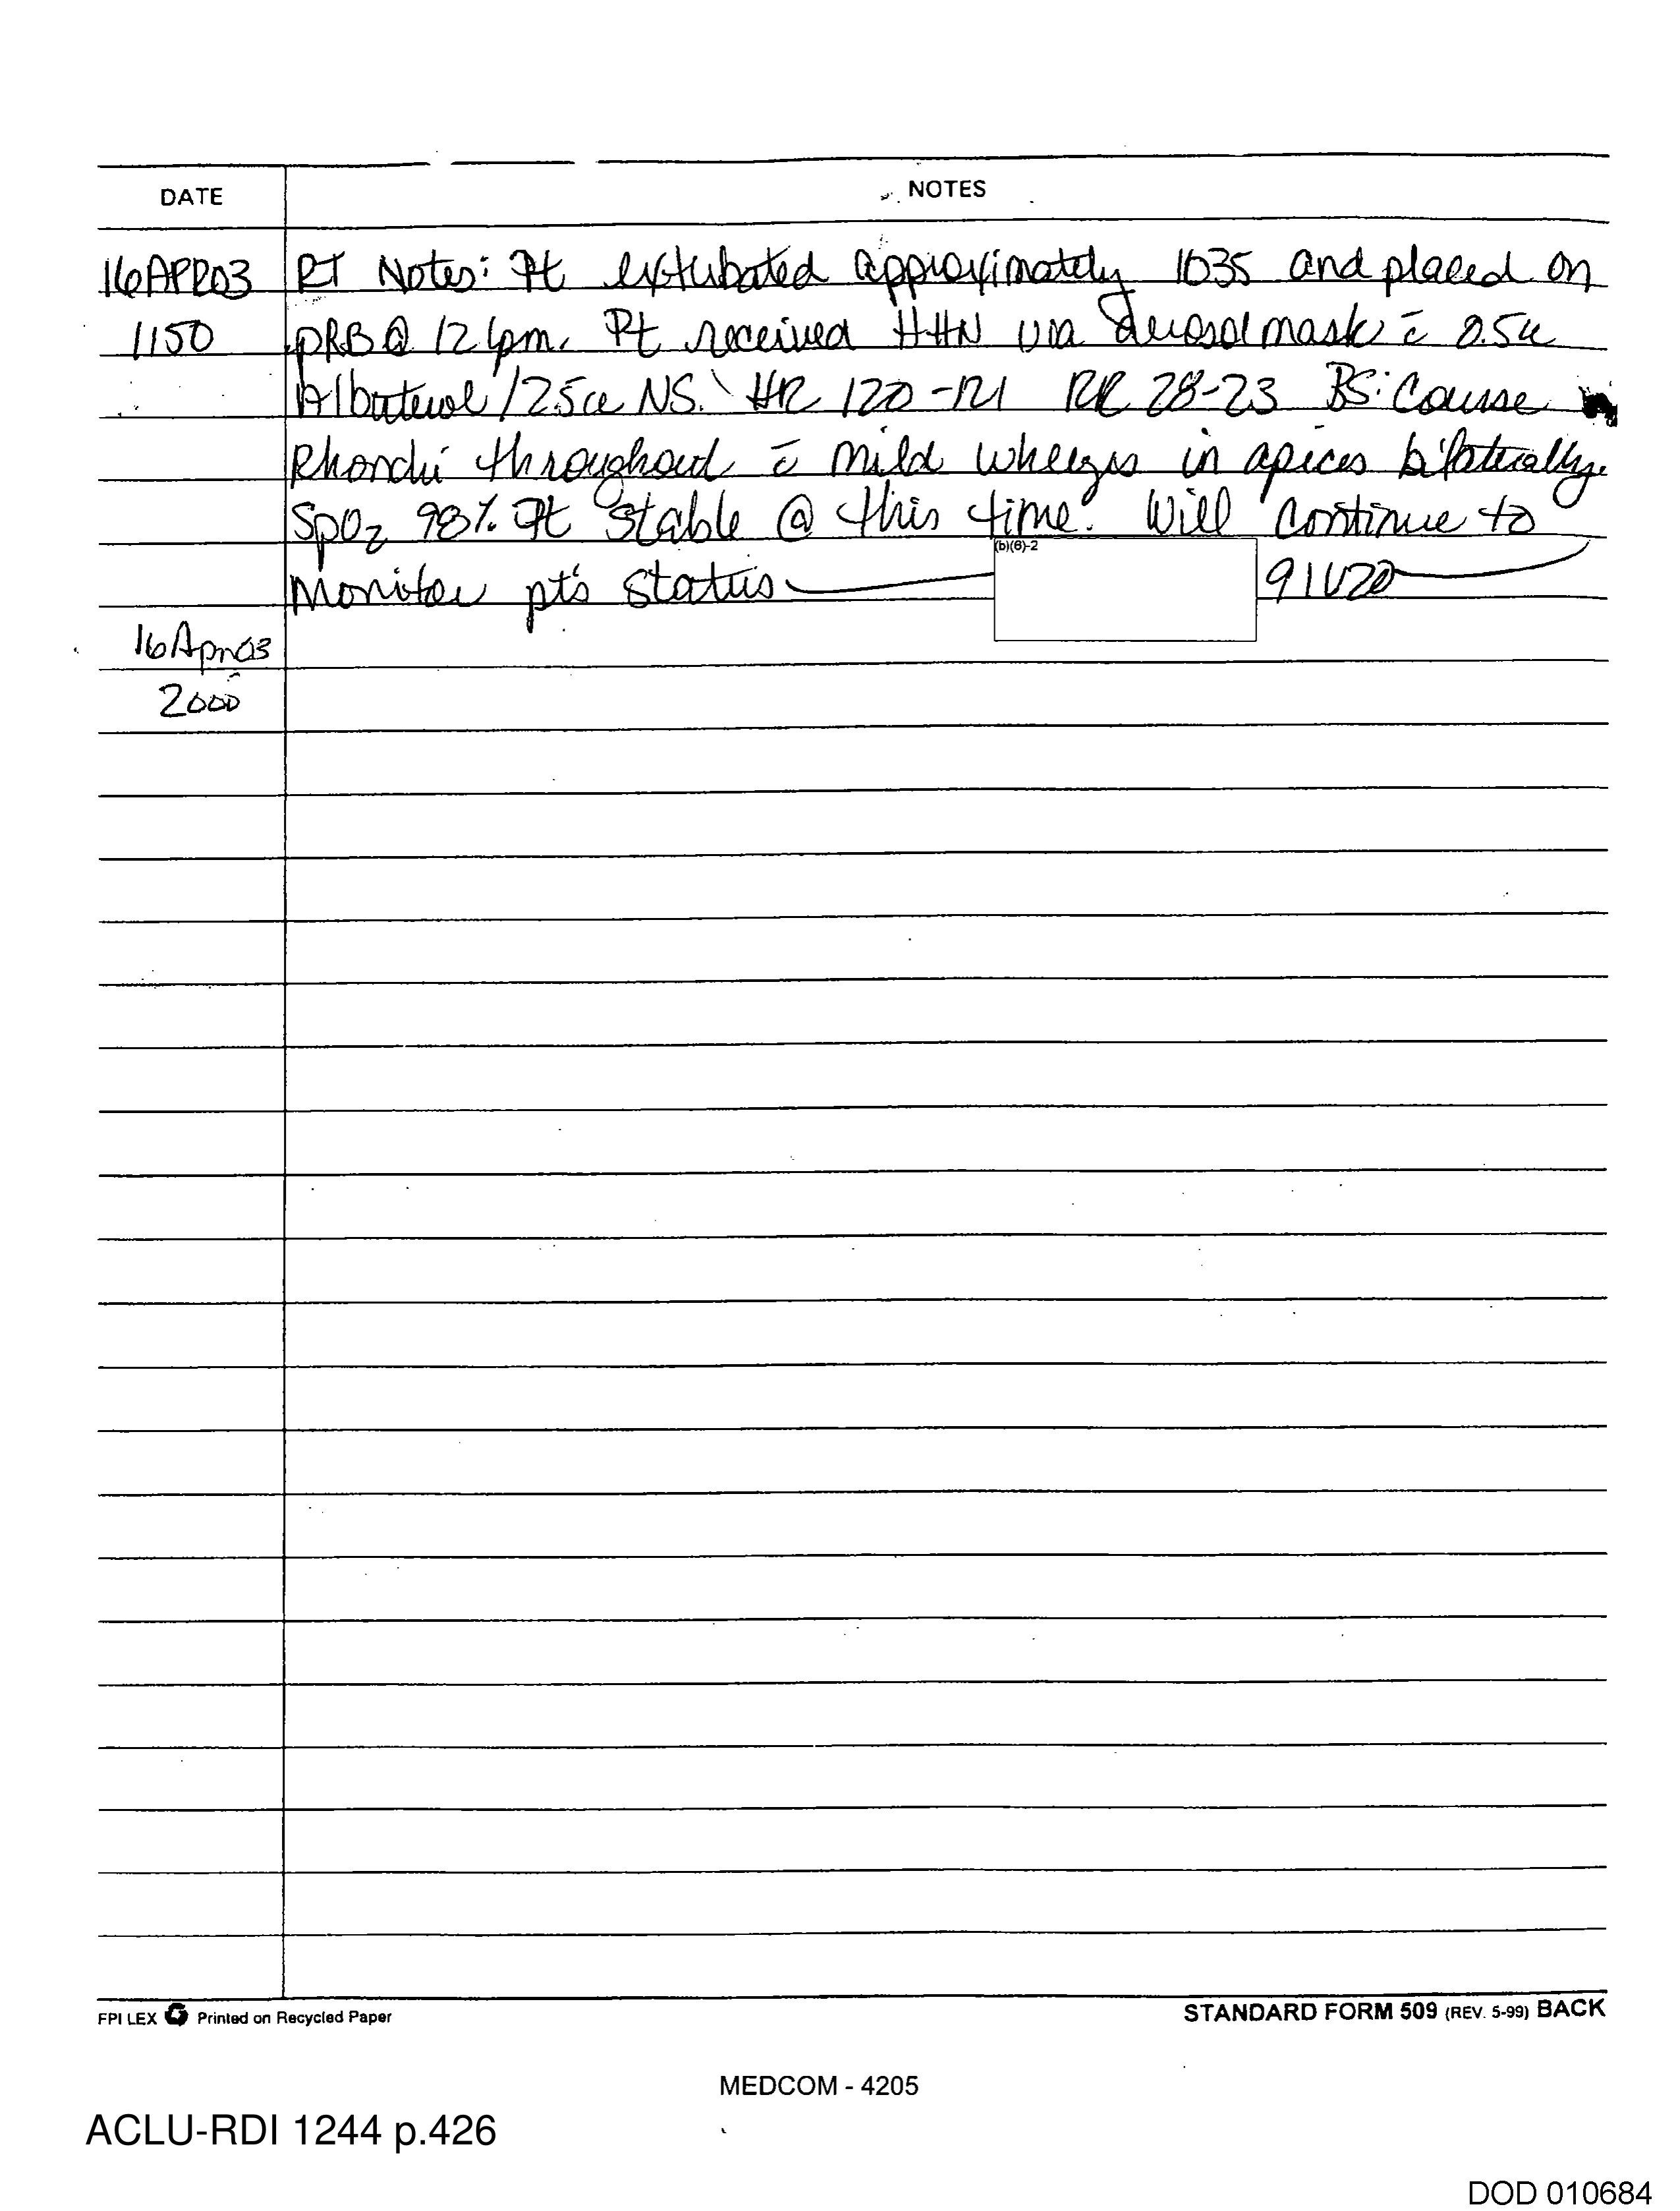 DATE NOTES
16APR03 RT Notes: Pt extubated approximately 1035 and placed on
1150 pRB @ 12 lpm. Pt received HHN via aerosol mask c̄ 0.5cc
Albuterol / 2.5cc NS. HR 120-121 RR 28-23 BS: Course
Rhonchi throughout c̄ mild wheezes in apices bilaterally.
SpO2 98% Pt stable @ this time. Will continue to
(b)(6)-2
Monitor pt's status 91V20
16Apr03
2000
FPI LEX Printed on Recycled Paper STANDARD FORM 509 (REV. 5-99) BACK
MEDCOM - 4205
ACLU-RDI 1244 p.426
DOD 010684